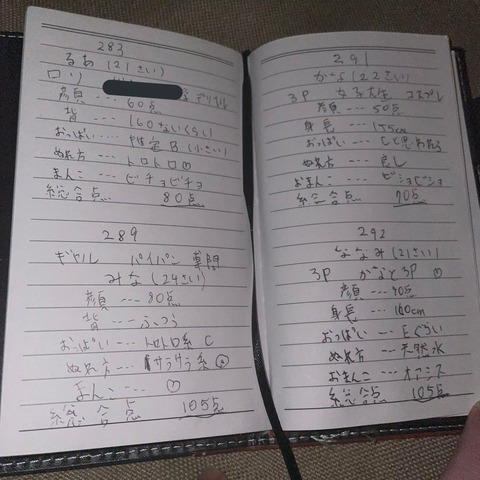 283
るあ (21さい)
ロリ デリヘル
顔 --- 60点
背 --- 160ないくらい
おっぱい --- 推定B (小さい)
ぬれ方 --- トロトロ♡
まんこ --- ビチョビチョ
総合点 80点
289
ギャル パイパン専門
みな (24さい)
顔 --- 80点
背 --- ふつう
おっぱい --- トロトロ系 C
ぬれ方 --- サラサラ系
まんこ --- ♡
総合点 105点
291
かな (22さい)
3P 女子大生 コスプレ
顔 --- 50点
身長 --- 155cm
おっぱい --- Eと思われる
ぬれ方 --- 良し
おまんこ --- ビショビショ
総合点 70点
292
ななみ (21さい)
3P かなと3P ♡
顔 --- 90点
身長 --- 160cm
おっぱい --- Eぐらい
ぬれ方 --- 天然水
おまんこ --- オアシス
総合点 105点